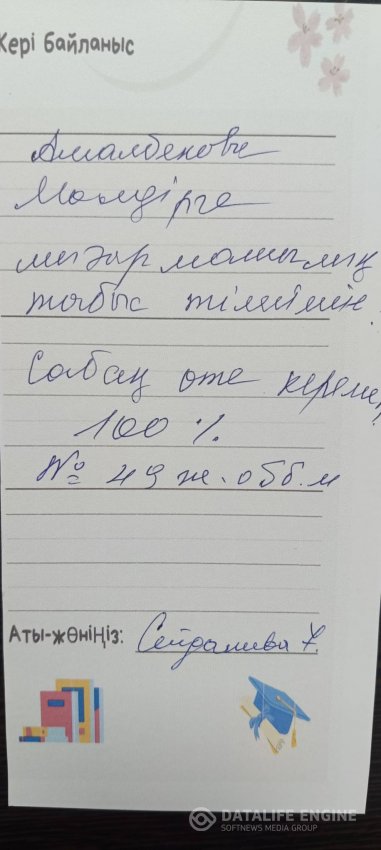 Кері байланыс
Амалбекова
Мөлдірге
шығармашылық
табыс тілеймін.
Сабақ өте керемет,
100 %
№ 49 ж.обб.м
Аты-жөніңіз: Сейдалиева Х.
DATALIFE ENGINE
SOFTNEWS MEDIA GROUP